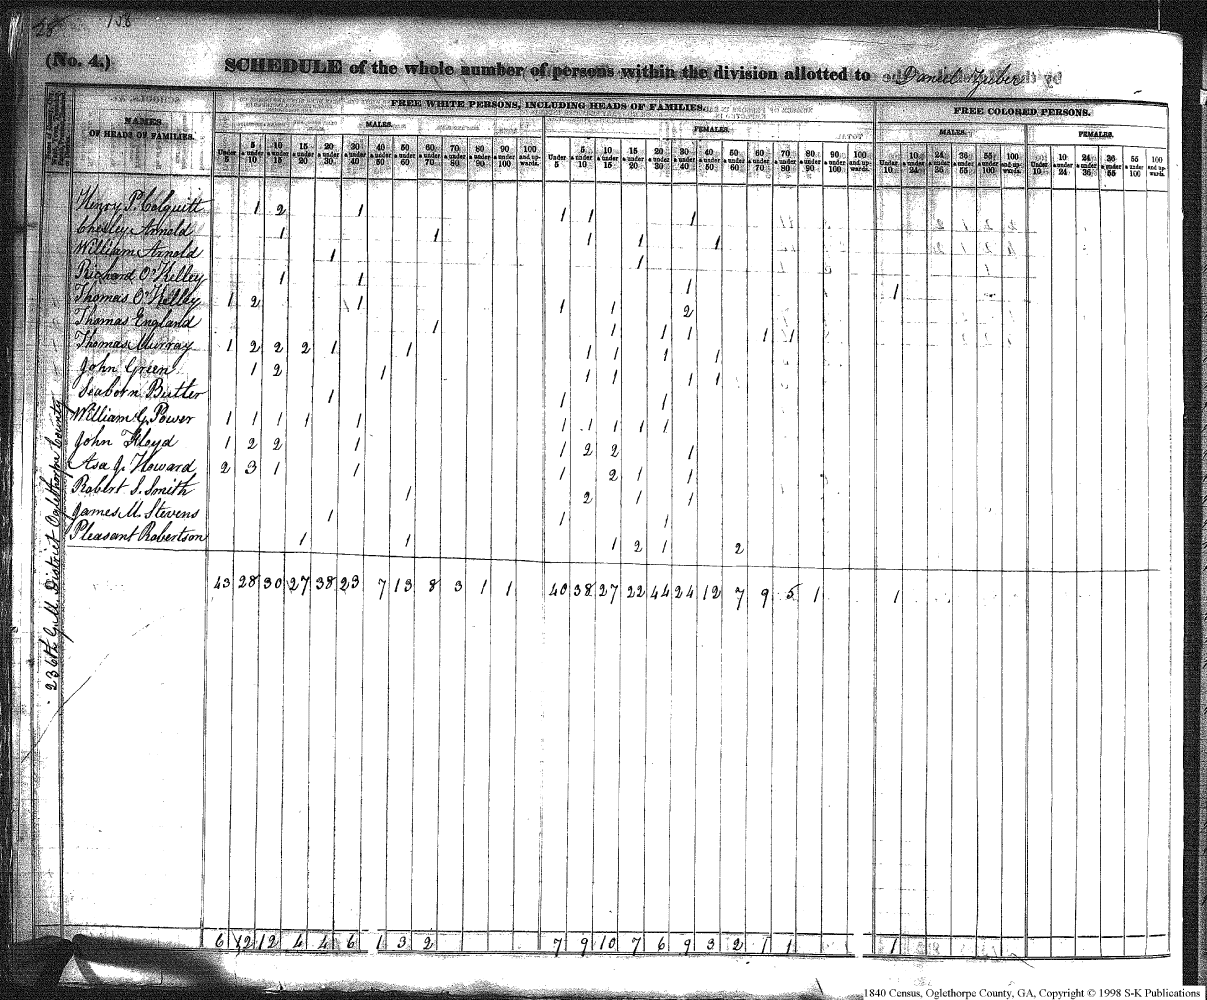 28 158
(No. 4.) SCHEDULE of the whole number of persons within the division allotted to Daniel Zuber
NAMES OF HEADS OF FAMILIES.
FREE WHITE PERSONS, INCLUDING HEADS OF FAMILIES.
FREE COLORED PERSONS.
MALES. FEMALES. MALES. FEMALES.
Under 5 5 & under 10 10 & under 15 15 & under 20 20 & under 30 30 & under 40 40 & under 50 50 & under 60 60 & under 70 70 & under 80 80 & under 90 90 & under 100 100 and upwards. Under 5 5 & under 10 10 & under 15 15 & under 20 20 & under 30 30 & under 40 40 & under 50 50 & under 60 60 & under 70 70 & under 80 80 & under 90 90 & under 100 100 and upwards. Under 10 10 & under 24 24 & under 36 36 & under 55 55 & under 100 100 and upwards. Under 10 10 & under 24 24 & under 36 36 & under 55 55 & under 100 100 and upwards.
Henry P. Colquitt 1 2 1 1 1 1
Chesley Arnold 1 1 1 1 1
William Arnold 1 1
Richard O'Kelley 1 1 1 1
Thomas O'Kelley 1 2 1 1 1 2
Thomas England 1 1 1 1 1 1
Thomas Murray 1 2 2 2 1 1 1 1 1 1
John Green 1 2 1 1 1 1 1
Seaborn Butler 1 1 1
William G. Power 1 1 1 1 1 1 1 1 1 1
John Floyd 1 2 2 1 1 2 2 1
Asa J. Howard 2 3 1 1 1 2 1 1
Robert S. Smith 1 2 1 1
James M. Stevens 1 1 1
Pleasant Robertson 1 1 1 2 1 2
43 28 30 27 38 23 7 13 8 3 1 1 40 38 27 22 44 24 12 7 9 5 1 1
236th G.M. District Oglethorpe County
6 12 12 4 4 6 1 3 2 7 9 10 7 6 9 3 2 1 1 1
1840 Census, Oglethorpe County, GA, Copyright © 1998 S-K Publications